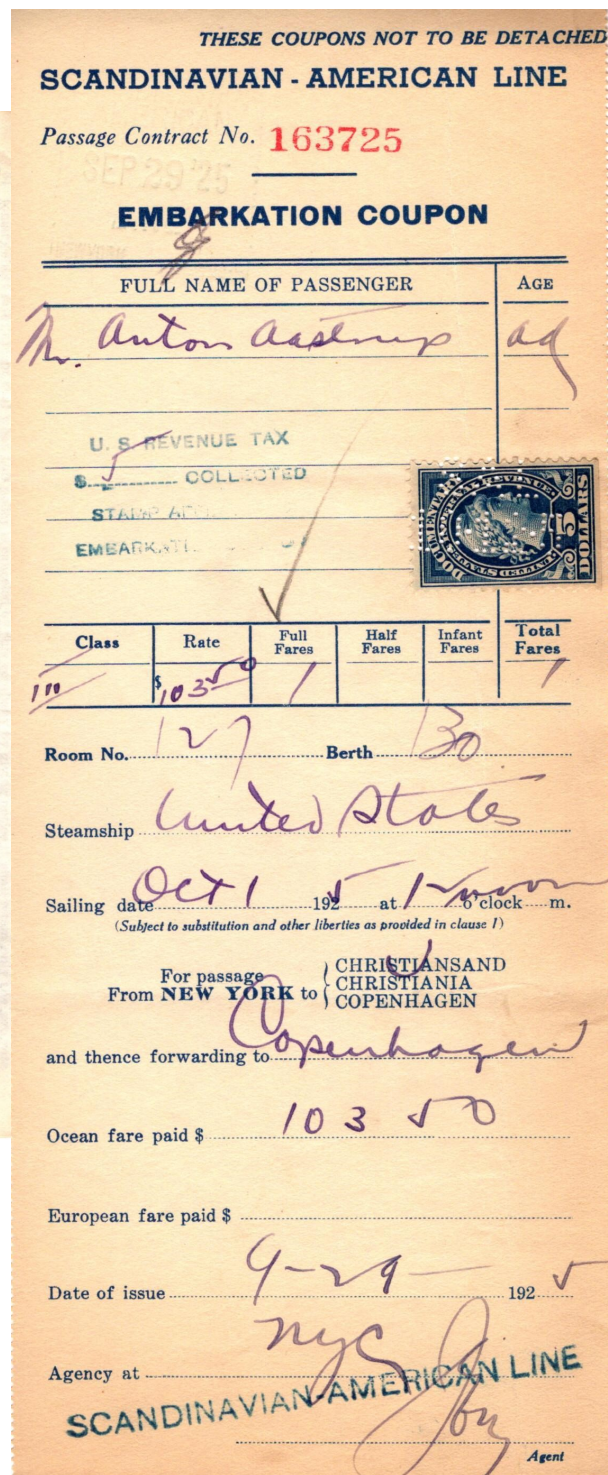 THESE COUPONS NOT TO BE DETACHED
SCANDINAVIAN - AMERICAN LINE
Passage Contract No. 163725
SEP 29 '25
EMBARKATION COUPON
FULL NAME OF PASSENGER AGE
Mr. Anton Aastrup ad
U. S. REVENUE TAX
$ 5 COLLECTED
STAMP
DOCUMENTARY
U.S. INTERNAL REVENUE
UNITED STATES
5 DOLLARS
Class Rate Full Fares Half Fares Infant Fares Total Fares
III $ 103 50 1 1
Room No. 127 Berth 130
Steamship United States
Sailing date Oct 1 1925 at 12 noon o'clock m.
(Subject to substitution and other liberties as provided in clause 1)
For passage From NEW YORK to { CHRISTIANSAND
CHRISTIANIA
COPENHAGEN
and thence forwarding to Copenhagen
Ocean fare paid $ 103 50
European fare paid $
Date of issue 9-29- 1925
Agency at NYC
SCANDINAVIAN-AMERICAN LINE
Agent